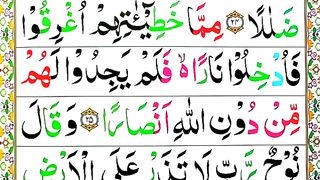 ضَلٰلًا ﴿۲۴﴾ مِمَّا خَطِيْٓـٰٔتِهِمْ اُغْرِقُوْا
فَاُدْخِلُوْا نَارًا ۙ۬ فَلَمْ يَجِدُوْا لَهُمْ
مِّنْ دُوْنِ اللّٰهِ اَنْصَارًا ﴿۲۵﴾ وَقَالَ
نُوْحٌ رَّبِّ لَا تَذَرْ عَلَى الْاَرْضِ